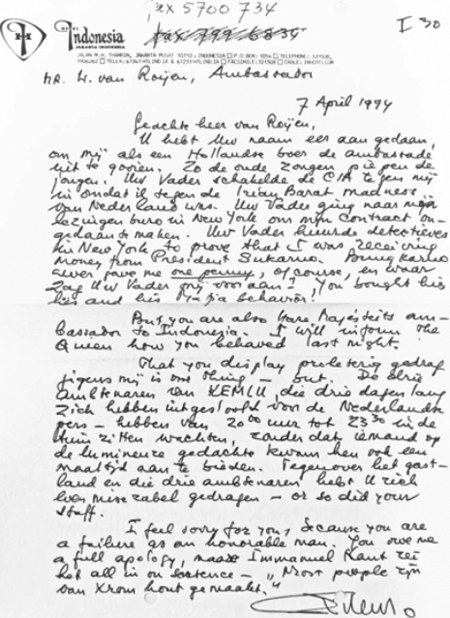 fax 5700 734
fax 799 6834
I 30
Indonesia
JAKARTA INDONESIA
Mr. W. van Roijen, Ambassador
7 April 1994
Geachte heer van Roijen,
U hebt Uw naam eer aan gedaan,
om mij als een Hollandse boer de ambassade
uit te gooien. Zo de oude zongen piepen de
jongen. Uw Vader schakelde de CIA tegen mij
in omdat ik tegen de Irian Barat madness
van Nederland was. Uw Vader ging naar mijn
lezingen buro in New York om mijn contract on-
gedaan te maken. Uw Vader huurde detectieves
in New York to prove that I was receiving
money from President Sukarno. Bung Karno
never gave me one penny, of course, en waar
zag Uw Vader mij voor aan? You bought his
lies and his behavior!
But you are also Hare Majesteits am-
bassador to Indonesia. I will inform the
Queen how you behaved last night.
That you display proleterig gedrag
jegens mij is one thing – but. De drie
ambtenaren van KEMLU, die drie dagen lang
zich hebben uitgesloofd voor de Nederlandse
pers – hebben van 20.00 uur tot 23.30 in de
tuin zitten wachten, zonder dat iemand op
de lumineuze gedachte kwam hen ook een
maaltijd aan te bieden. Tegenover het gast-
land en die drie ambtenaren hebt U zich
even miserabel gedragen – or so did your
staff.
I feel sorry for you, because you are
a failure as an honorable man. You owe me
a full apology, maar Immanuel Kant zei
het all in on sentence – „Most people zijn
van krom hout gemaakt."